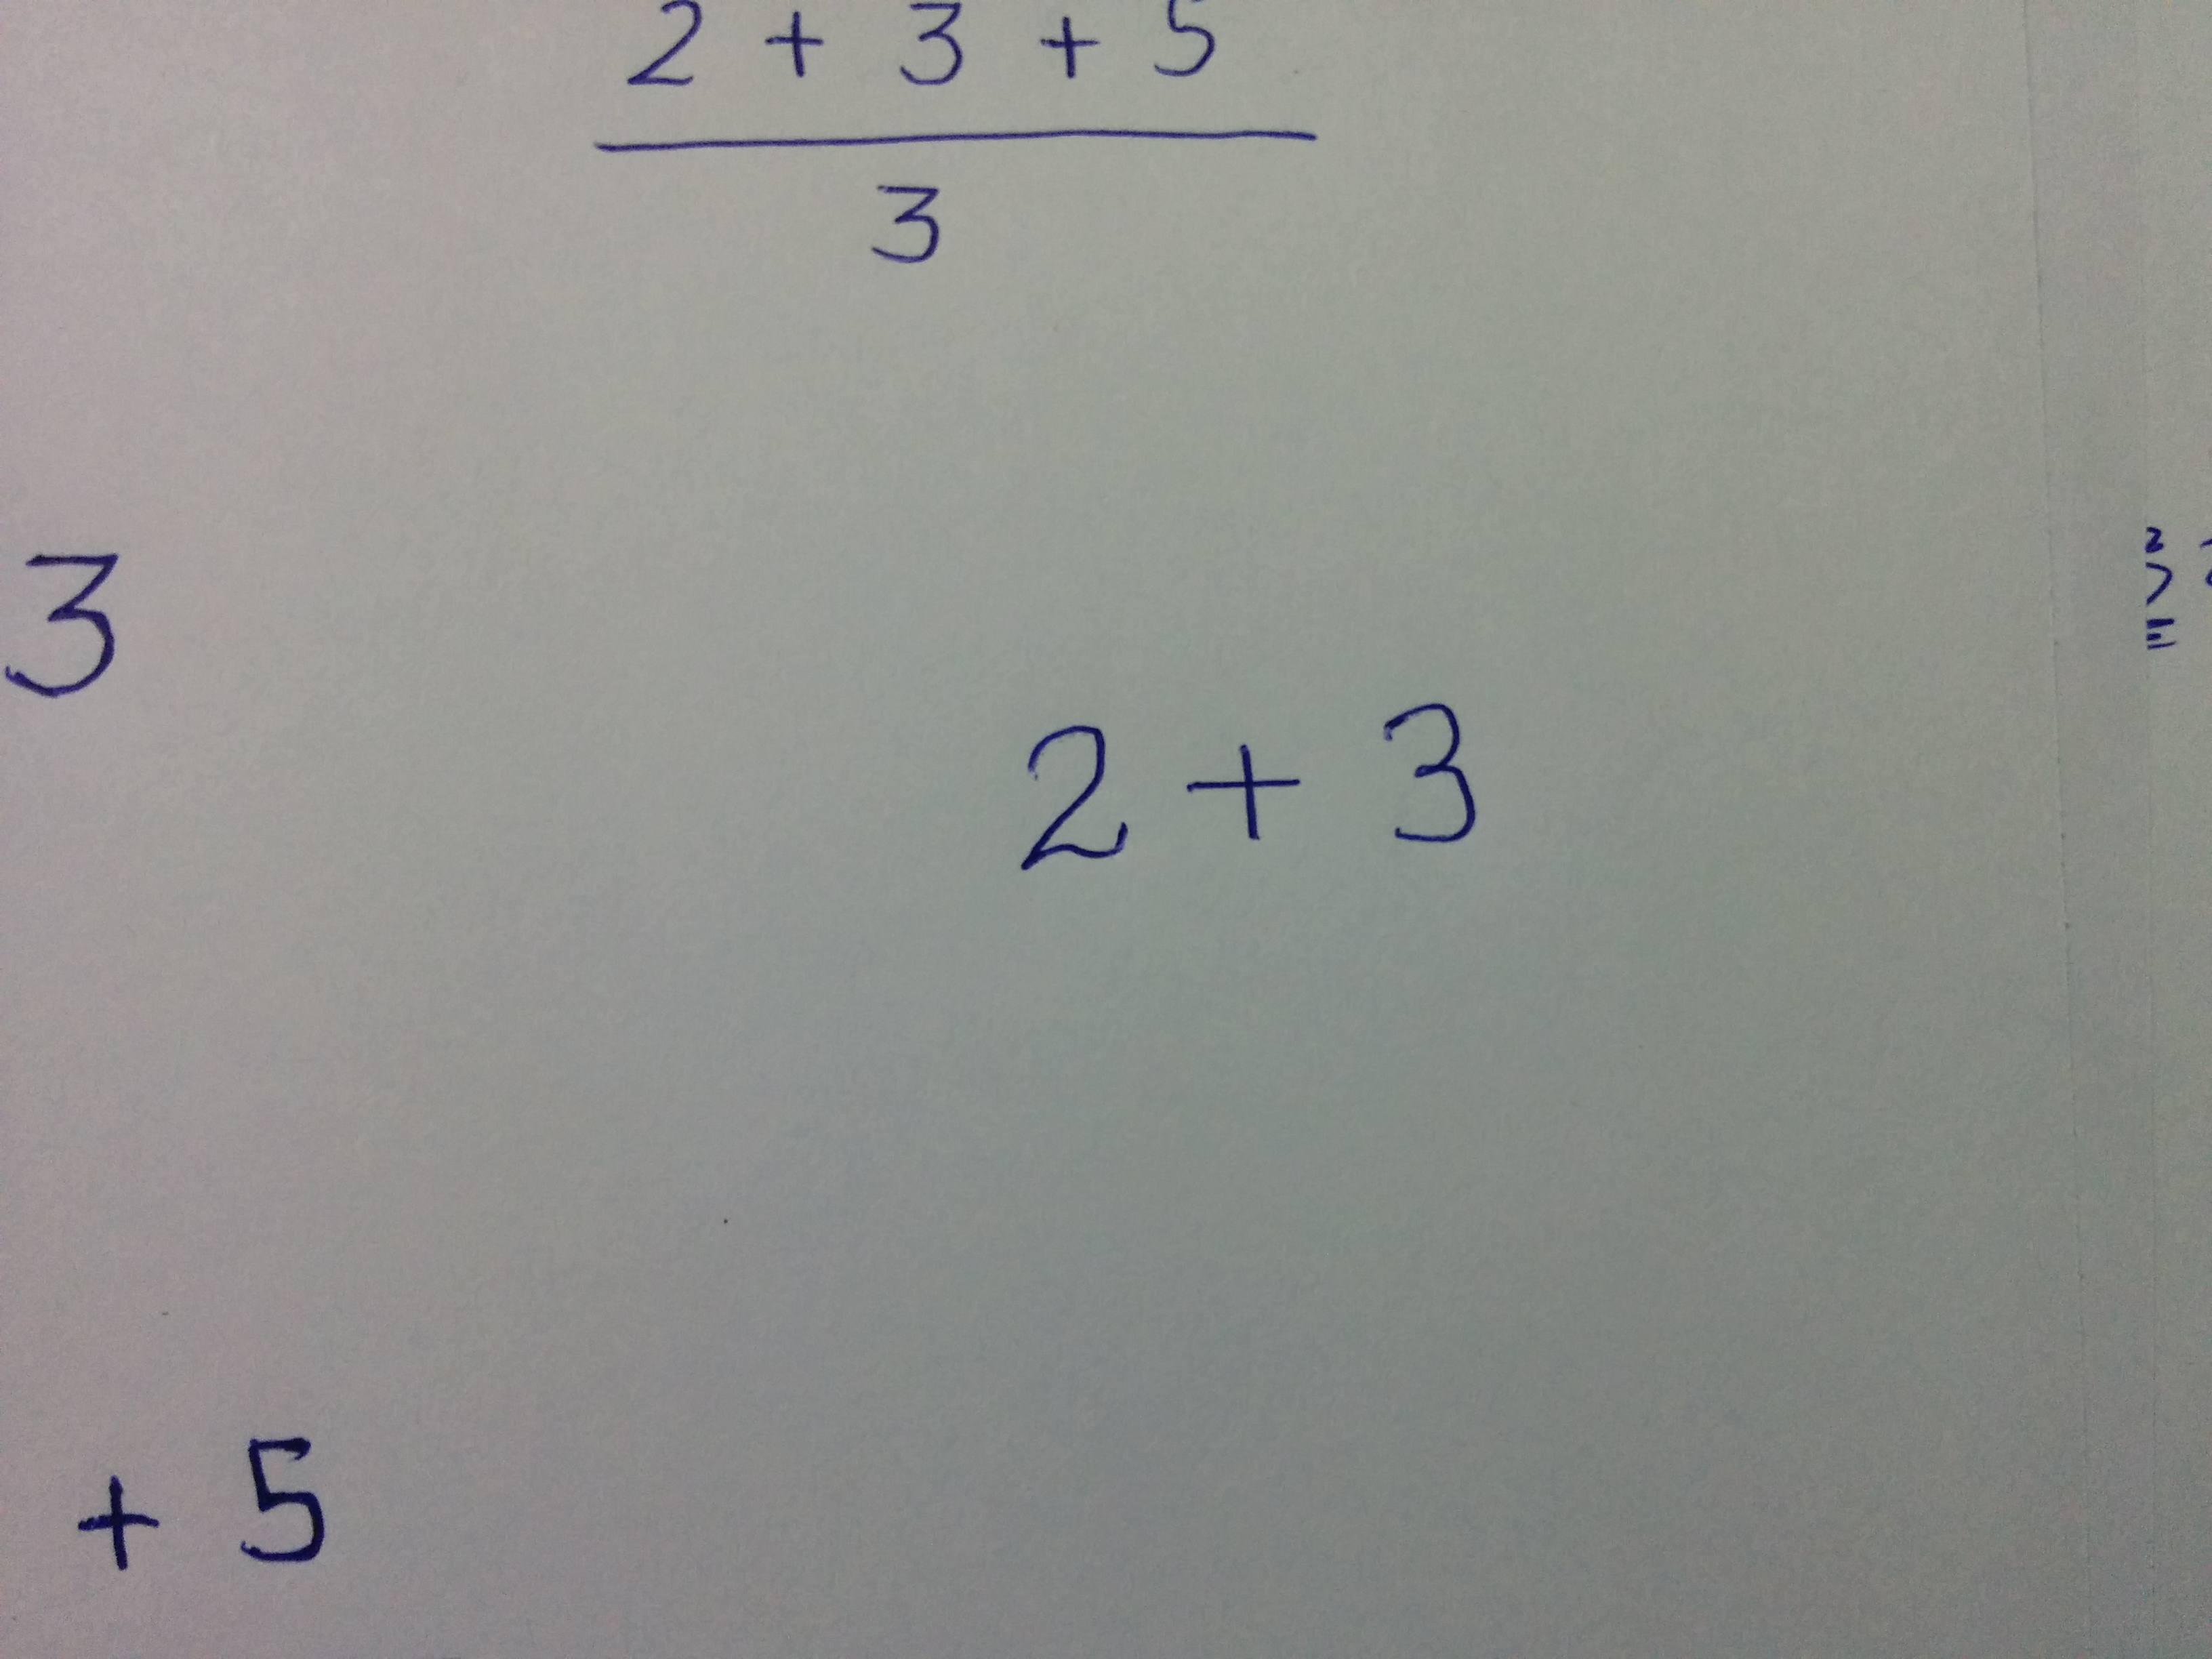 2 + 3 + 5
3
3
2 + 3
+ 5